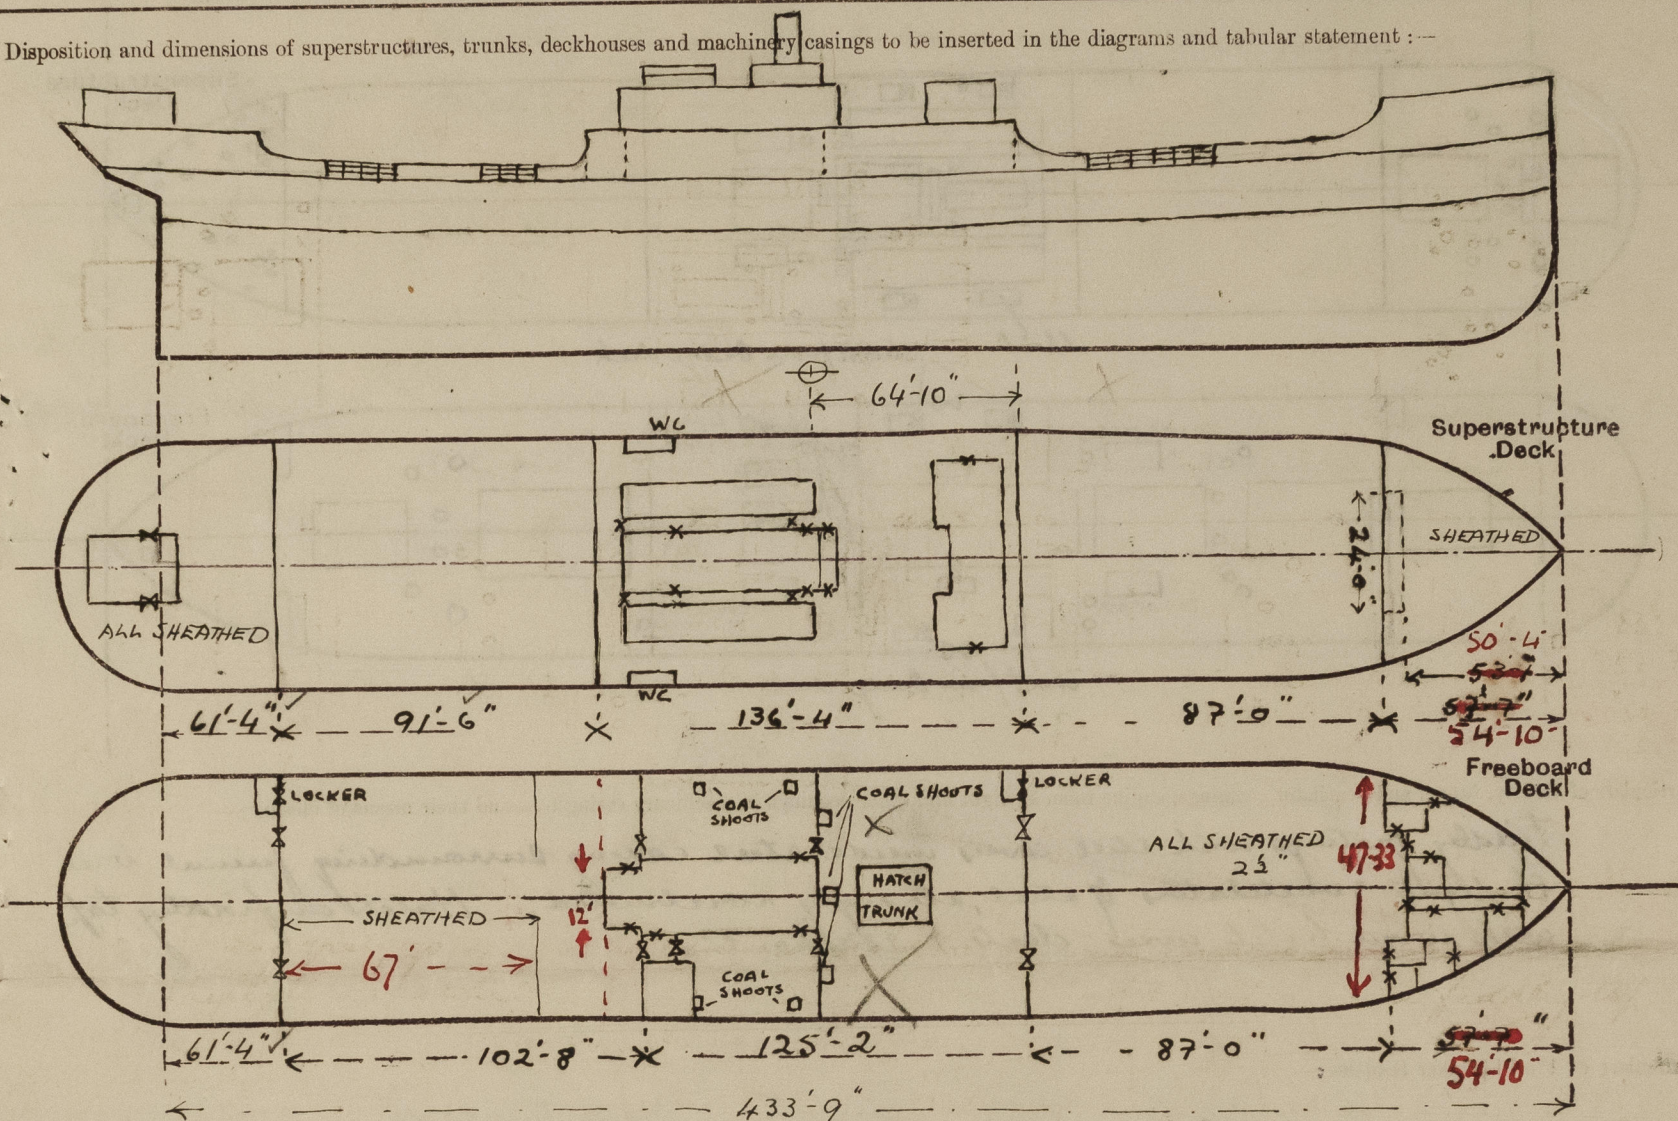 Disposition and dimensions of superstructures, trunks, deckhouses and machinery casings to be inserted in the diagrams and tabular statement :—
64'-10"
WC
Superstructure
Deck
SHEATHED
24'-0"
ALL SHEATHED
50'-4
WC
61'-4" 91'-6" 136'-4" 87'-0" 57'-7"
54'-10
Freeboard
Deck
LOCKER COAL SHOOTS COAL SHOOTS LOCKER
ALL SHEATHED
2½"
47-33
HATCH
TRUNK
12'
SHEATHED
67'
COAL
SHOOTS
61'-4" 102'-8" 125'-2" 87'-0" 57'-7"
54'-10"
433'-9"